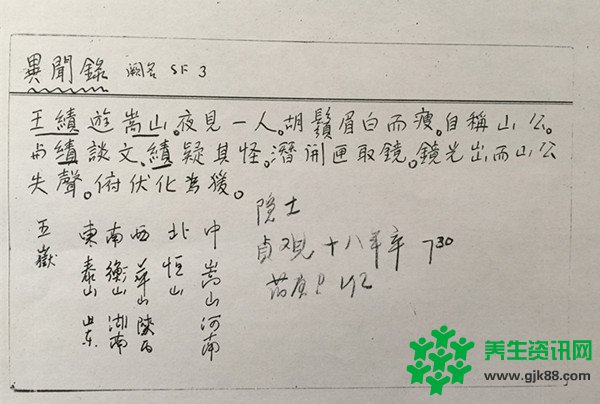 異聞錄 闕名 SF 3
王績遊嵩山。夜見一人。胡鬚眉白而瘦。自稱山公。
与績談文。績疑其怪。潛開匣取鏡。鏡光出而山公
失聲。俯伏化為猨。
五嶽
東 泰山 山东
南 衡山 湖南
西 華山 陝西
北 恒山
中 嵩山 河南
隐士
貞观十八年卒 730
养生资讯网
www.gjk88.com